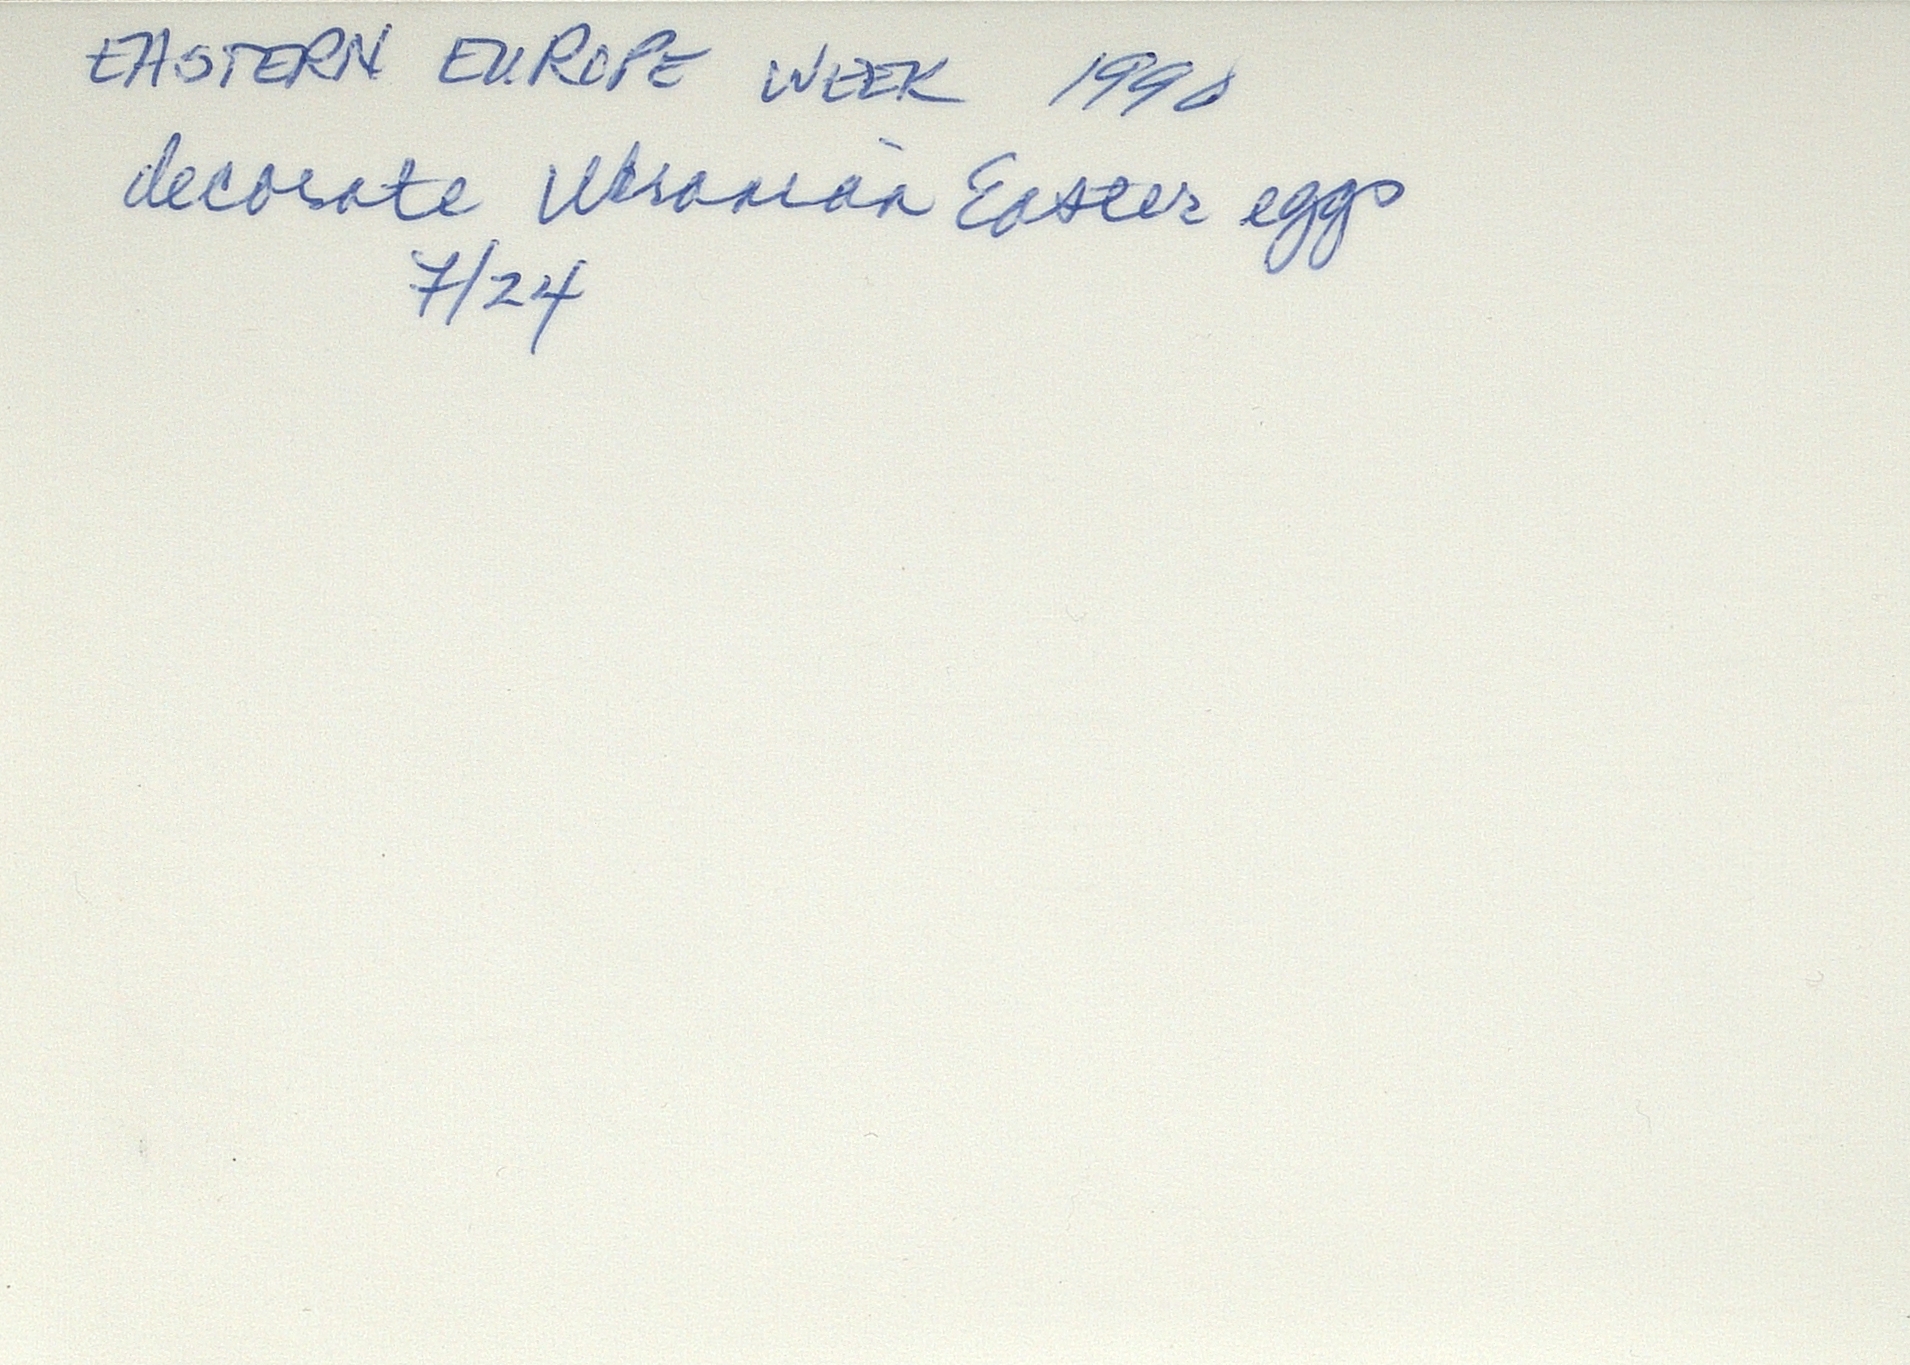 EASTERN EUROPE WEEK
decorate Ukranian Easter eggs
7/24